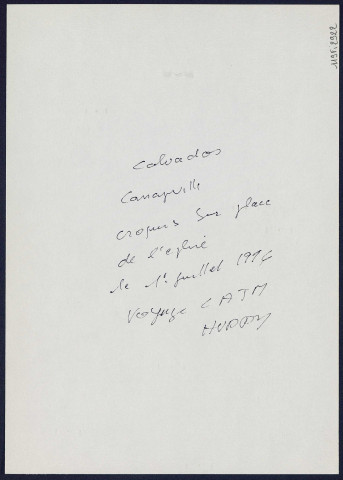 Calvados
Canapville
croquis sur place
de l'église
le 1er juillet 1996
Voyage CATM